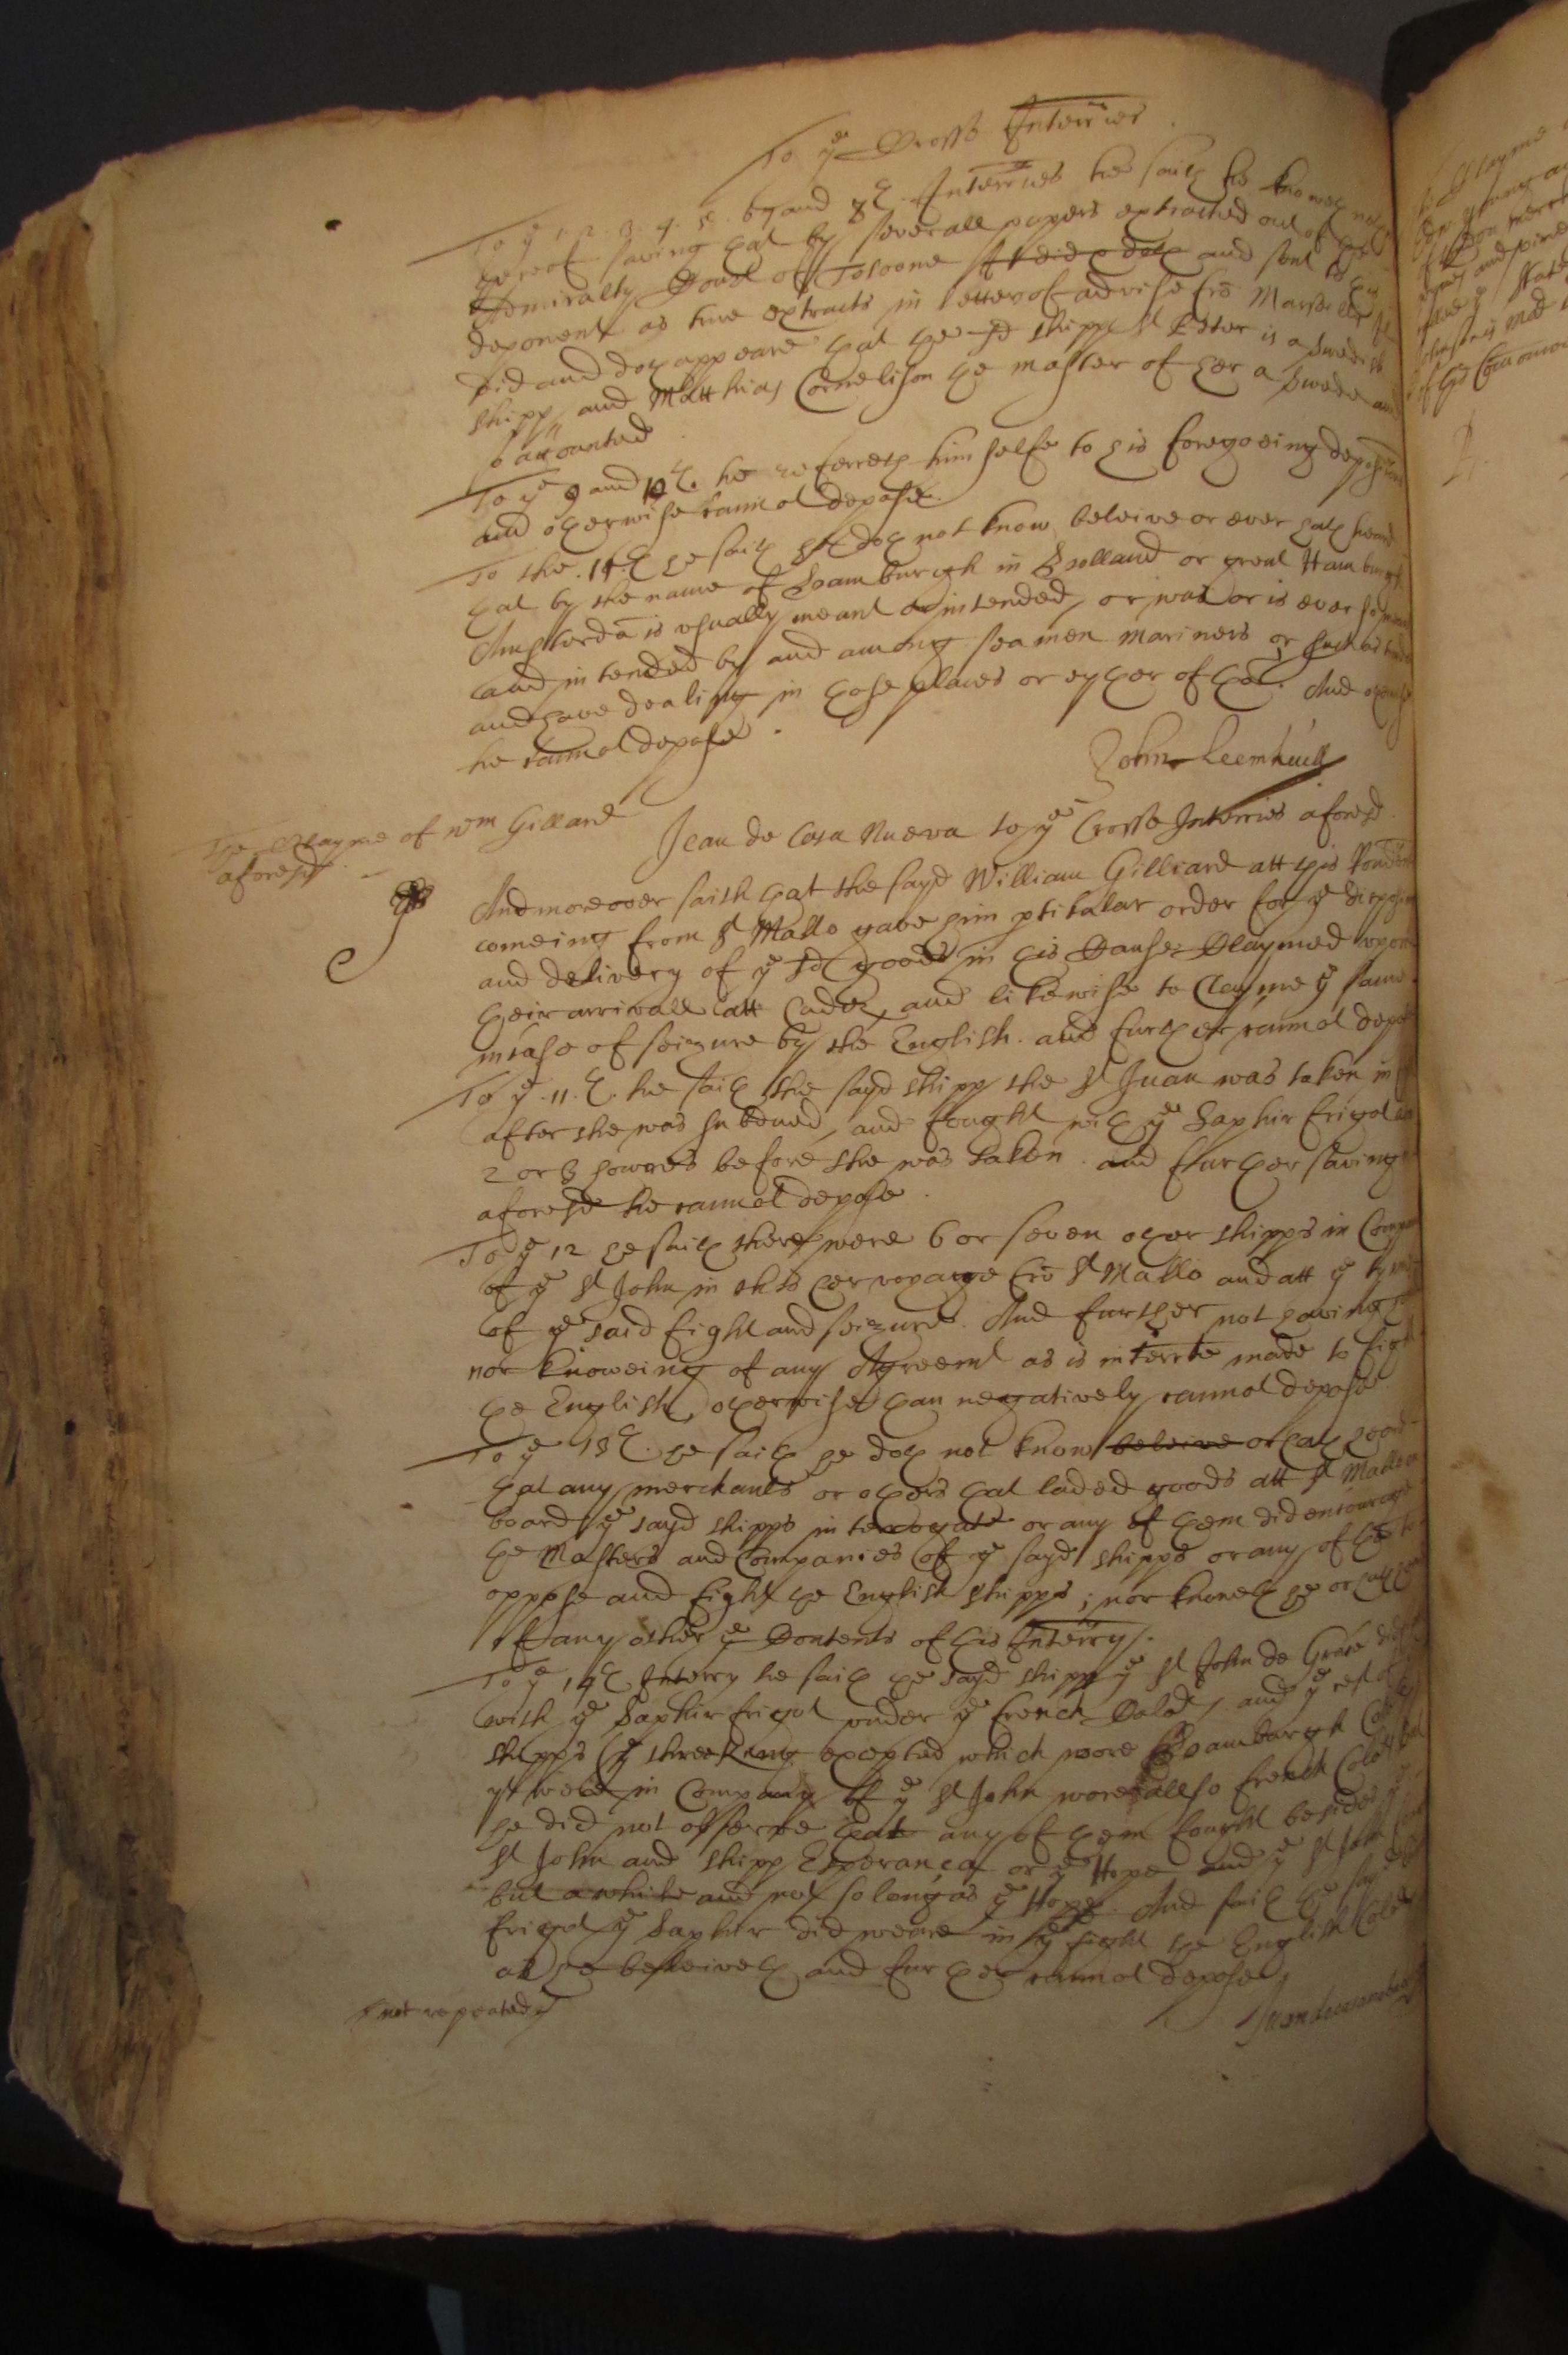 To ye Crosse Interries
To ye 1. 2. 3. 4. 5. 6 7 and 8th Interries he saith he knoweth not
thereof saving that by severall papers extracted out of the
Admiralty Court of Toloone it did & doth and sent to this
deponent as true extracts in letter of advise frō Marseilles it
did and doth appeare that the sd shipp St Peter is a Swedish
shipp, and Matthias Cornelison the master of her a Swede and
so accounted
To ye 9 and 10th. he referreth himselfe to his foregoeing deposicon
and otherwise cannot depose.
To the 11th he saith hee doth not know beleive or ever hath heard
that by the name of Hamburgh in Holland or great Hamburgh
Amsterdā is vsually meant or intended, or was or is ever so meant
and intended by and among seamen mariners or such as trade
and have dealing in those places or eyther of thē. And otherwise
he cannot depose.
John Leemkuell
The Clayme of Wm Gilland
aforesd
Jean de Casa Nueva to ye Crosse Interries aforesd.
And moreover saith that the sayd William Gilliard att this Rendents
comeing from St Mallo gave him pticular order for ye disposicon
and delivery of ye sd goods in his Cause Claymed vpon
their arrivall att Cadez, and likewise to Clayme ye same
in case of seizure by the English. and further cannot depose
To ye .11.th. he saith the sayd shipp the St Juan was taken in
after she was subdued, and fought with ye Saphir frigot
2 or 3 howres before she was taken. and further saving
aforesd he cannot depose.
To ye 12 he saith there were 6 or seven other shipps in Company
of ye St John in this her voyage frō St Mallo and att ye tyme
of ye said fight and seizure. And further not haveing
nor knoweing of any Agreemt as is interrte made to fight
the English, otherwise than negatively cannot depose
To ye 13th. he saith he doth not know beleive or hath heard
that any merchants or others that laded goods att St Mallo
board ye sayd shipps interrogate or any of them did encourage
the Masters and Companies of ye sayd shipps or any of thē to
oppose and fight the English shipps; nor knoweth he or
of any other ye Contents of this Interry.
To ye 14th Interry he saith the sayd shipp ye St John de Grace did
with ye Saphir frigot vnder ye French Colors, and ye rest of
shipps (ye three Kings excepted which wore Hamburgh Colors
yt were in Company of ye St John wore allso French Colors but
he did not observe that any of them fought besides ye
St John and shipp Esperanca or ye Hope and ye St John
but a while and not so long as ye Hope. And saith ye sayd
frigot ye Saphir did weare in ye fight the English Colors
as he beleiveth and further cannot depose
not repeated
Juan de casanueva